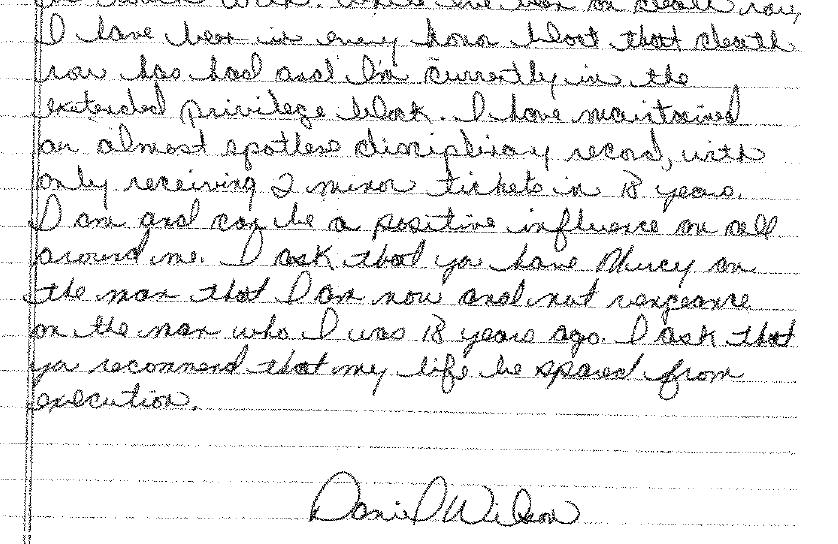 I've been on death row,
I have been in every honor block that death
row has had and I'm currently in the
extended privilege block. I have maintained
an almost spotless disciplinary record, with
only receiving 2 minor tickets in 18 years.
I am and can be a positive influence on all
around me. I ask that ya have Mercy on
the man that I am now and not vengeance
on the man who I was 18 years ago. I ask that
ya recommend that my life be spared from
execution.
Daniel Wilson